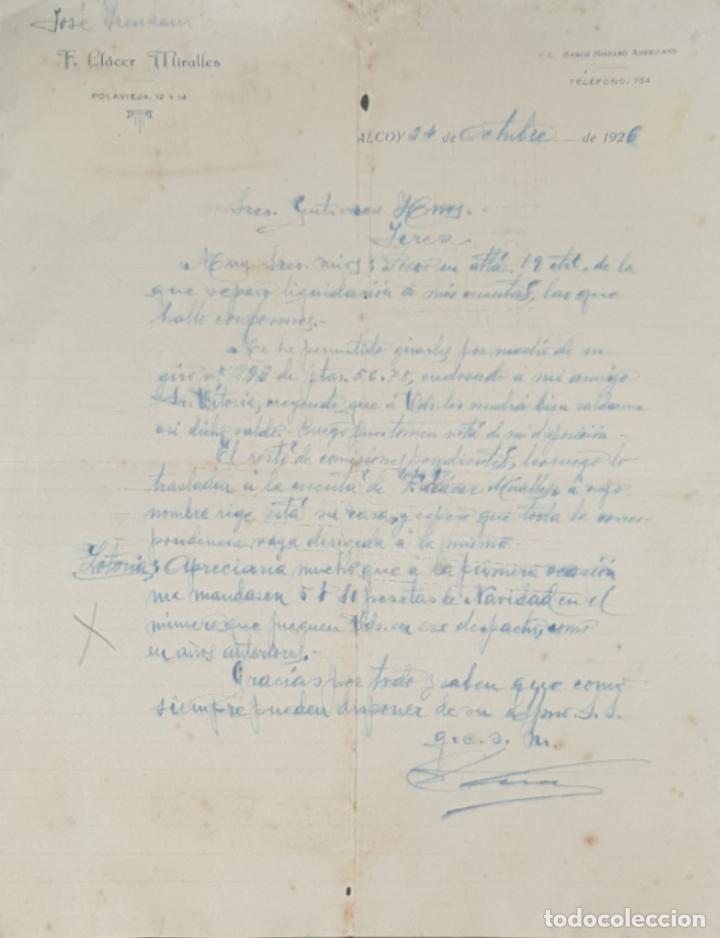 José
F. Llácer Miralles
POLAVIEJA, 12 Y 14
C/C. BANCO HISPANO AMERICANO
TELÉFONO, 754
ALCOY 24 de Octubre de 1926
Sres. Gutierrez Hnos.
Jerez
Muy Sres. mios: en att/ª. 19 de la
que separo liquidación de mis cuentas, las que
hallo conformes.-
Me he permitido girarles por medio de un
giro nº 293 de ptas. 56.75, endosado á mi amigo
Sr. Vitoria, creyendo que á Vds. les vendrá bien saldarme
asi dicho saldo. Ruego pues tomen nota de mi disposición.-
El resto de comisiones pendientes, les ruego lo
trasladen á la cuenta de F. Llácer Miralles á cuyo
nombre rige esta su casa, y espero que toda la corres-
pondencia vaya dirigida á la misma.-
Lotería; Apreciaria mucho que á la primera ocasión
me mandasen 5 ó 10 pesetas de Navidad en el
número que jueguen Vds. en ese despacho, como
en años anteriores.-
Gracias por todo y saben que como
siempre pueden disponer de su S. S.
q. e. s. m.
todocoleccion